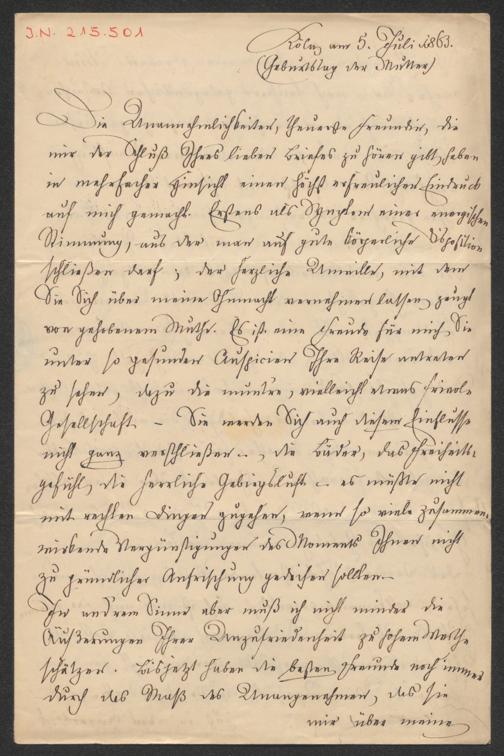 J.N. 215.501
Köln, am 5. Juli 1863.
(Geburtstag der Mutter)
Die Unannehmlichkeiten, theuerste Freundin, die
mir der Schluß Ihres lieben Briefes zu hören gibt, haben
in mehrfacher Hinsicht einen höchst erfreulichen Eindruck
auf mich gemacht. Erstens als Symptom einer energischen
Stimmung, aus der man auf gute körperliche Disposition
schließen darf; der herzliche Unwille, mit dem
Sie Sich über meine Ohnmacht vernehmen lassen, zeugt
von gehobenem Muthe. Es ist eine Freude für mich, Sie
unter so gesunden Auspicien Ihre Reise antreten
zu sehen, dazu die muntre, vielleicht etwas frivole
Gesellschaft – Sie werden Sich auch diesem Einflusse
nicht ganz verschließen –, die Bäder, das Freiheits-
gefühl, die herrliche Gebirgsluft – es müßte nicht
mit rechten Dingen zugehen, wenn so viele zusammen-
wirkende Vergünstigungen des Moments Ihnen nicht
zu gründlicher Auffrischung gedeihen sollten. –
In andrem Sinne aber muß ich nicht minder die
Äußerungen Ihrer Unzufriedenheit zu hohem Werthe
schätzen. Bis jetzt haben die besten Freunde noch immer
durch das Maß des Unangenehmen, das sie
mir über meine